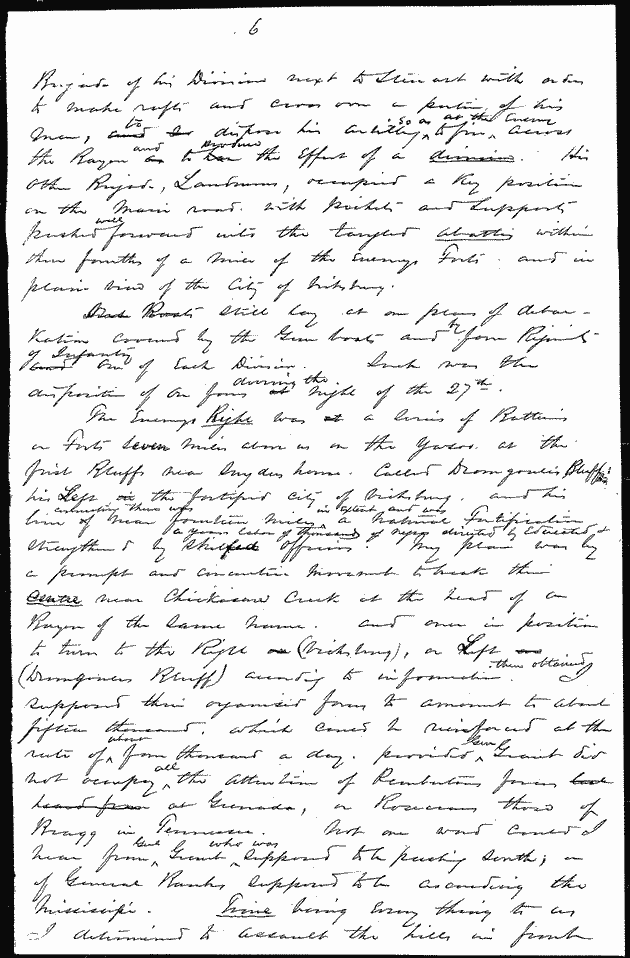 6
Brigade of his Division next to Stewart with orders
to make rafts and cross over a portion of his
men, to dispose his artillery so as at the Enemy to fire across
the Bayou and produce the Effect of a division. His
other Brigade, Landrums, occupied a Key position
on the Main road. with Pickets and Supports
pushed well forward into the tangled abattis within
three fourths of a mile of the Enemys Forts. and in
plain view of the City of Vicksburg.
Our Boats still lay at our place of debar-
kation covered by the Gun boats and by four Regiments
of Infantry one of Each Division. Such was the
disposition of our forces during the night of the 27th.
The Enemys Right was a series of Batteries
or Forts seven miles above us on the Yazoo. at the
first Bluffs near Snyders house. Called Drumgoulds Bluff:
his Left the fortified city of Vicksburg. and his
line connecting these was of near fourteen miles in extent and was a natural Fortification
strengthened by a years labor of thousands of negros directed by educated & skilled officers. My plan was by
a prompt and concentric movement to break their
centre near Chickasaw Creek at the head of a
Bayou of the same name. and once in position
to turn to the Right (Vicksburg), or Left
(Drumgoulds Bluff) according to information then obtained. I
supposed their organised forces to amount to about
fifteen thousand. which could be reinforced at the
rate of about four thousand a day. provided Genl Grant did
not occupy all the attention of Pembertons forces
at Grenada, or Rosecrans those of
Bragg in Tennessee. Not one word could I
hear from Genl Grant who was supposed to be pushing South; or
of General Banks supposed to be ascending the
Mississippi. Time being Every thing to us
I determined to assault the hills in front